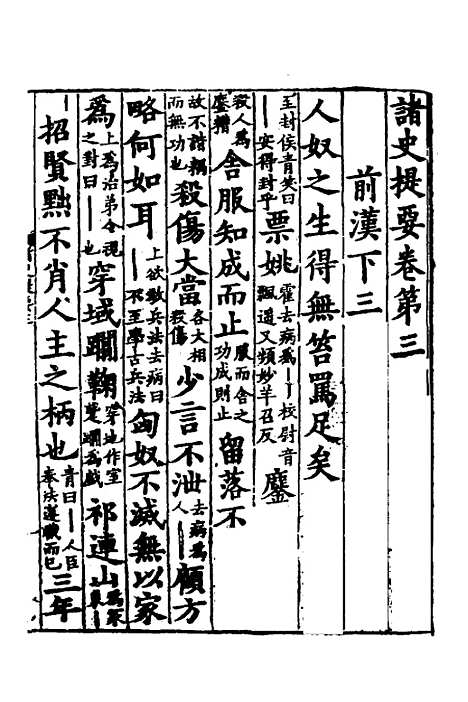 諸史提要卷第三
前漢下三
人奴之生得無笞罵足矣
至封侯青笑曰丨丨安得封乎票姚霍去病為丨丨校尉音飄遥又頻妙羊召反鏖
殺人為鏖糟舍服知成而止服而舍之功成則止留落不
故不諧耦而無功也殺傷大當各大相殺傷少言不泄去病為人丨丨顧方
略何如耳上欲教兵法去病曰丨丨不至學古兵法匈奴不滅無以家
為上為治第令視之對曰丨丨也穿域蹋鞠穿地作室蹋為戲祁連山為冢象丨
招賢黜不肖人主之柄也青曰丨丨人臣奉法遵職而已三年